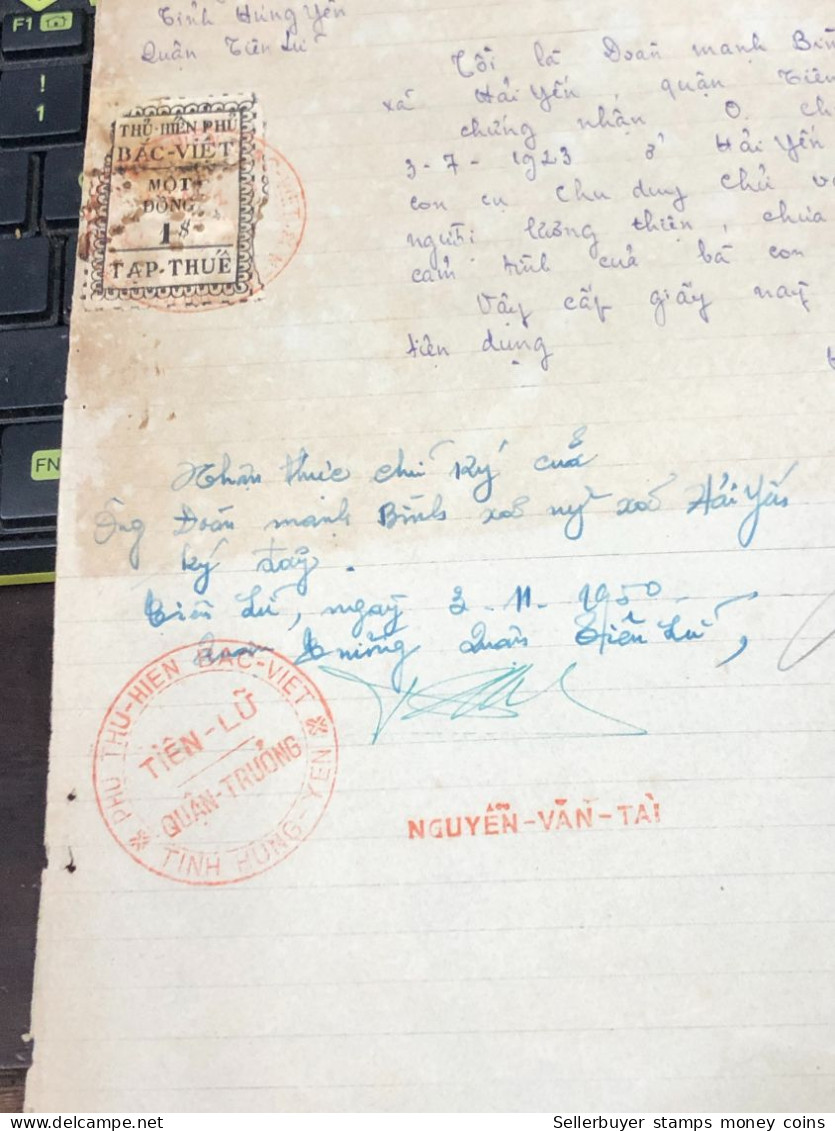 Tỉnh Hưng Yên
Quận Tiên Lữ
Tôi là Đoàn mạnh Bin
xã Hải Yến, quận Tiên
chứng nhận O. ch
3-7-1923 ở Hải Yến
con cụ Chu duy Chử v
người lương thiện, chưa
cảm tình của bà con
Vậy cấp giấy này
tiện dụng
THỦ-HIẾN PHỦ
BẮC-VIỆT
MỘT
ĐỒNG
1$
TẠP-THUẾ
Nhận thực chữ ký của
Ông Đoàn mạnh Bình xã uỷ xã Hải Yến
ký đây.
Tiên Lữ, ngày 3-11-1950
Quận Tiên Lữ,
PHỦ THỦ-HIẾN BẮC-VIỆT
TIÊN-LỮ
QUẬN-TRƯỞNG
TỈNH HƯNG-YÊN
NGUYỄN-VĂN-TÀI
F1
!
1
FN
Sellerbuyer stamps money coins